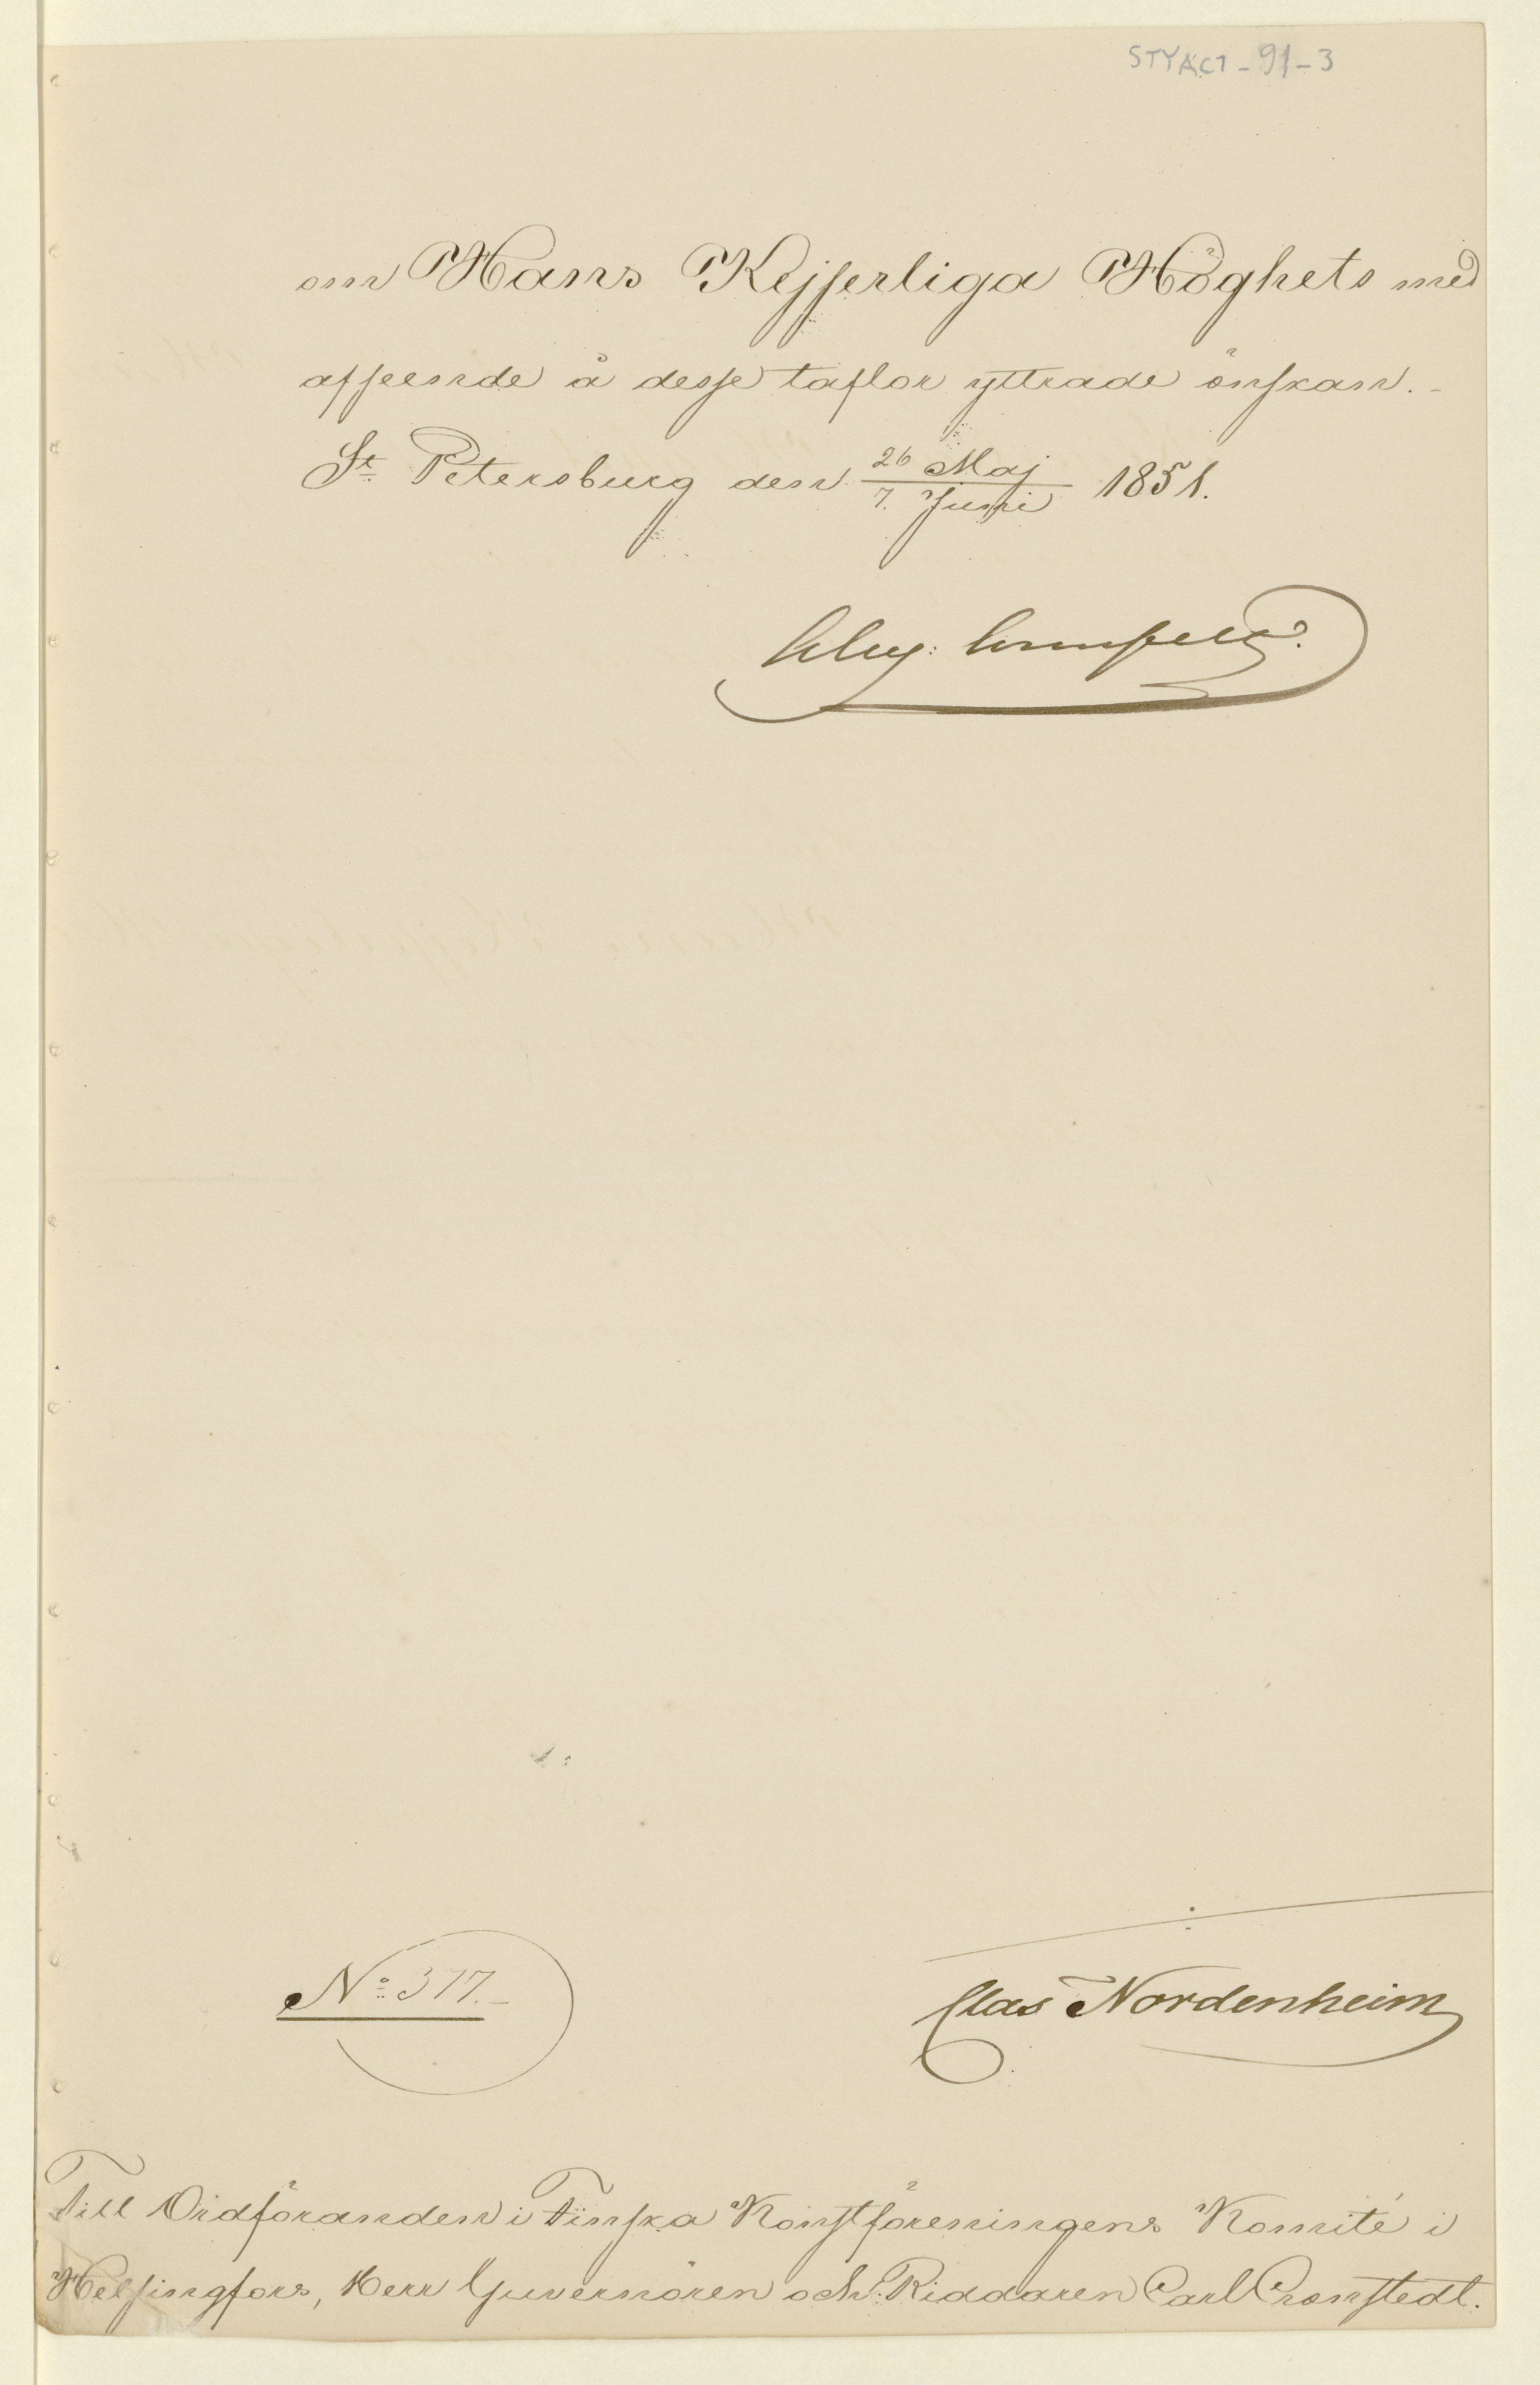 STYÄCT-91-3
om Hans Kejserliga Höghets med
afseende å desse taflor yttrade önskan.-
St Petersburg den 26 Maj / 7. Juni 1851.
Alex: Armfelt.
No 377.-
Clas Nordenheim
Till Ordföranden i Finska Konstföreningens Komité i
Helsingfors, Herr Guvernören och Riddaren Carl Cronstedt.